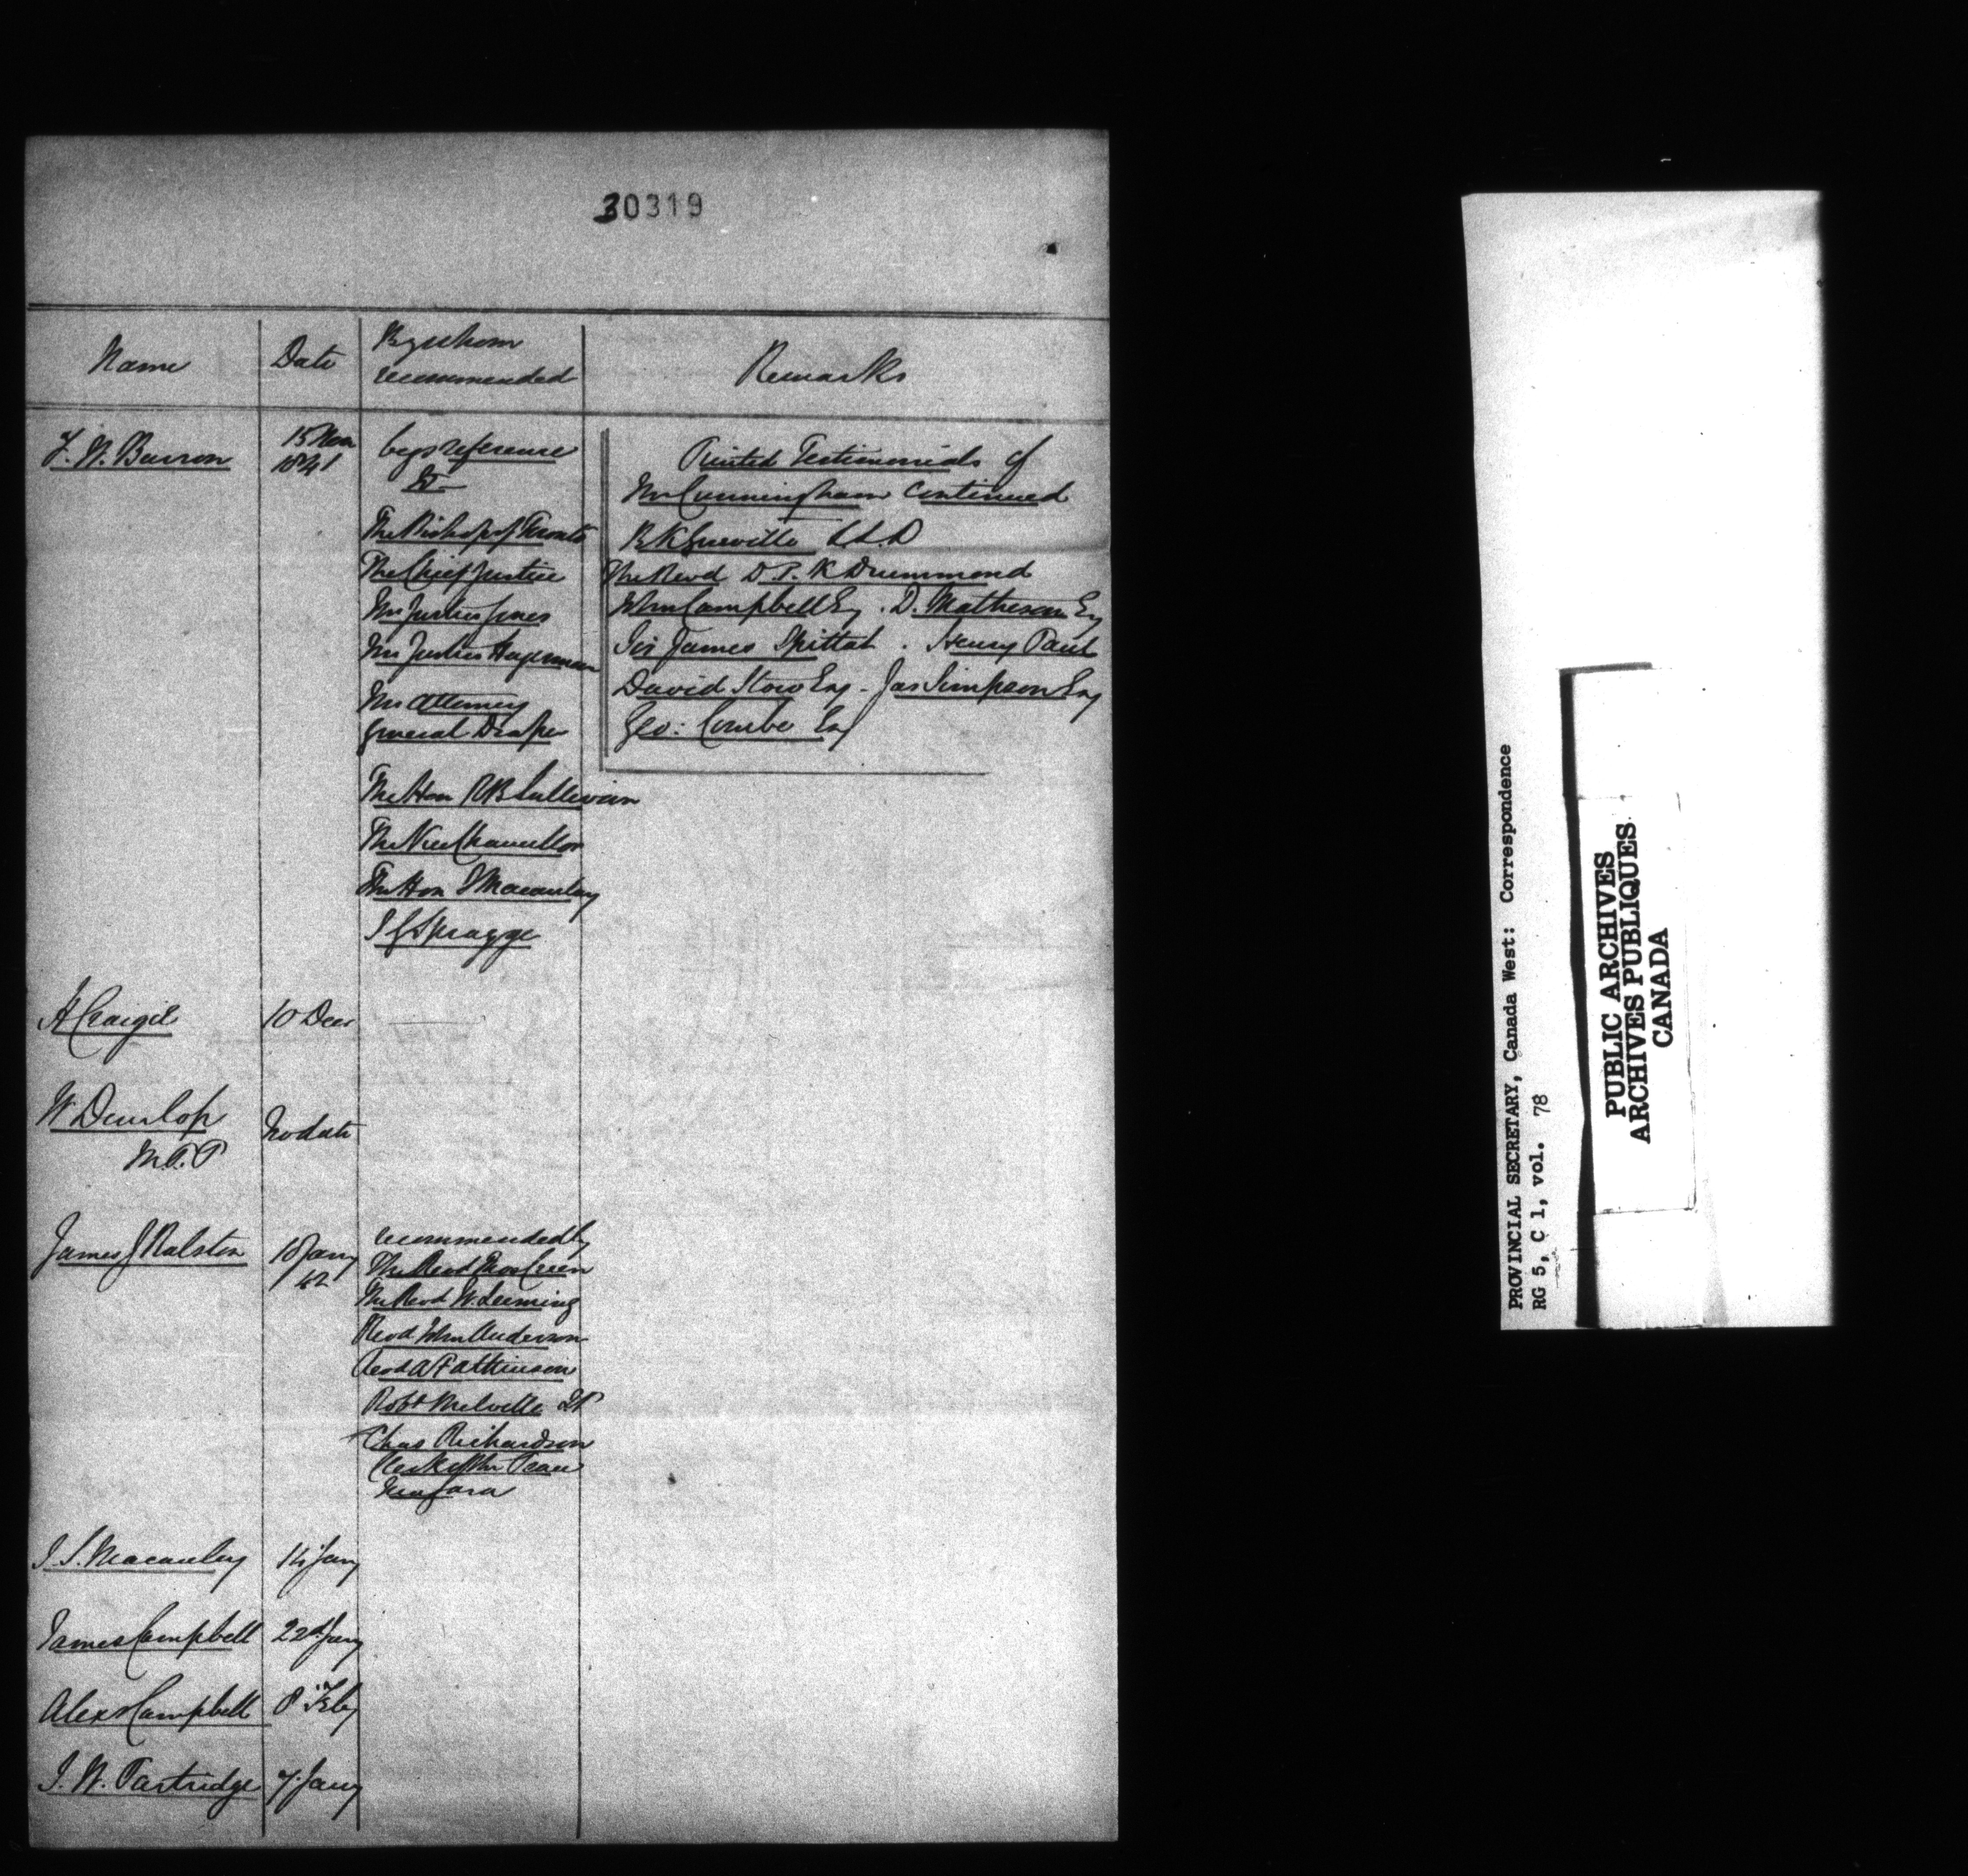 30319
Name
Date
By whom
recommended
Remarks
F. W. Barron
15 Nov
1841
begs reference
to
The Bishop of Toronto
The Chief Justice
Mr Justice Jones
Mr Justice Hagerman
Mr Attorney
General Draper
The Hon R B Sullivan
The Vice Chancellor
The Hon J Macaulay
J G Spragge
Printed Testimonials of
Mr Cunningham continued
R K Greville LL.D
The Revd D. T. K Drummond
John Campbell Esq. D. Matheson Esq
Sir James Spittal. Henry Paul
David Stow Esq - Jas Simpson Esq
Geo: Combe Esq
A Craigie
10 Decr
W Dunlop
M.P.P
No date
James J Ralston
18 Jany
42
recommended by
The Revd Thos Creen
The Revd W. Leeming
Revd John Anderson
Revd A F Atkinson
Robt Melville JP
Chas Richardson
Clerk of the Peace
Niagara
J. S. Macaulay
14 Jany
James Campbell
22d Jany
Alexr Campbell
8 Feby
J. W. Partridge
7. Jany
PROVINCIAL SECRETARY, Canada West: Correspondence
RG 5, C 1, vol. 78
PUBLIC ARCHIVES
ARCHIVES PUBLIQUES
CANADA